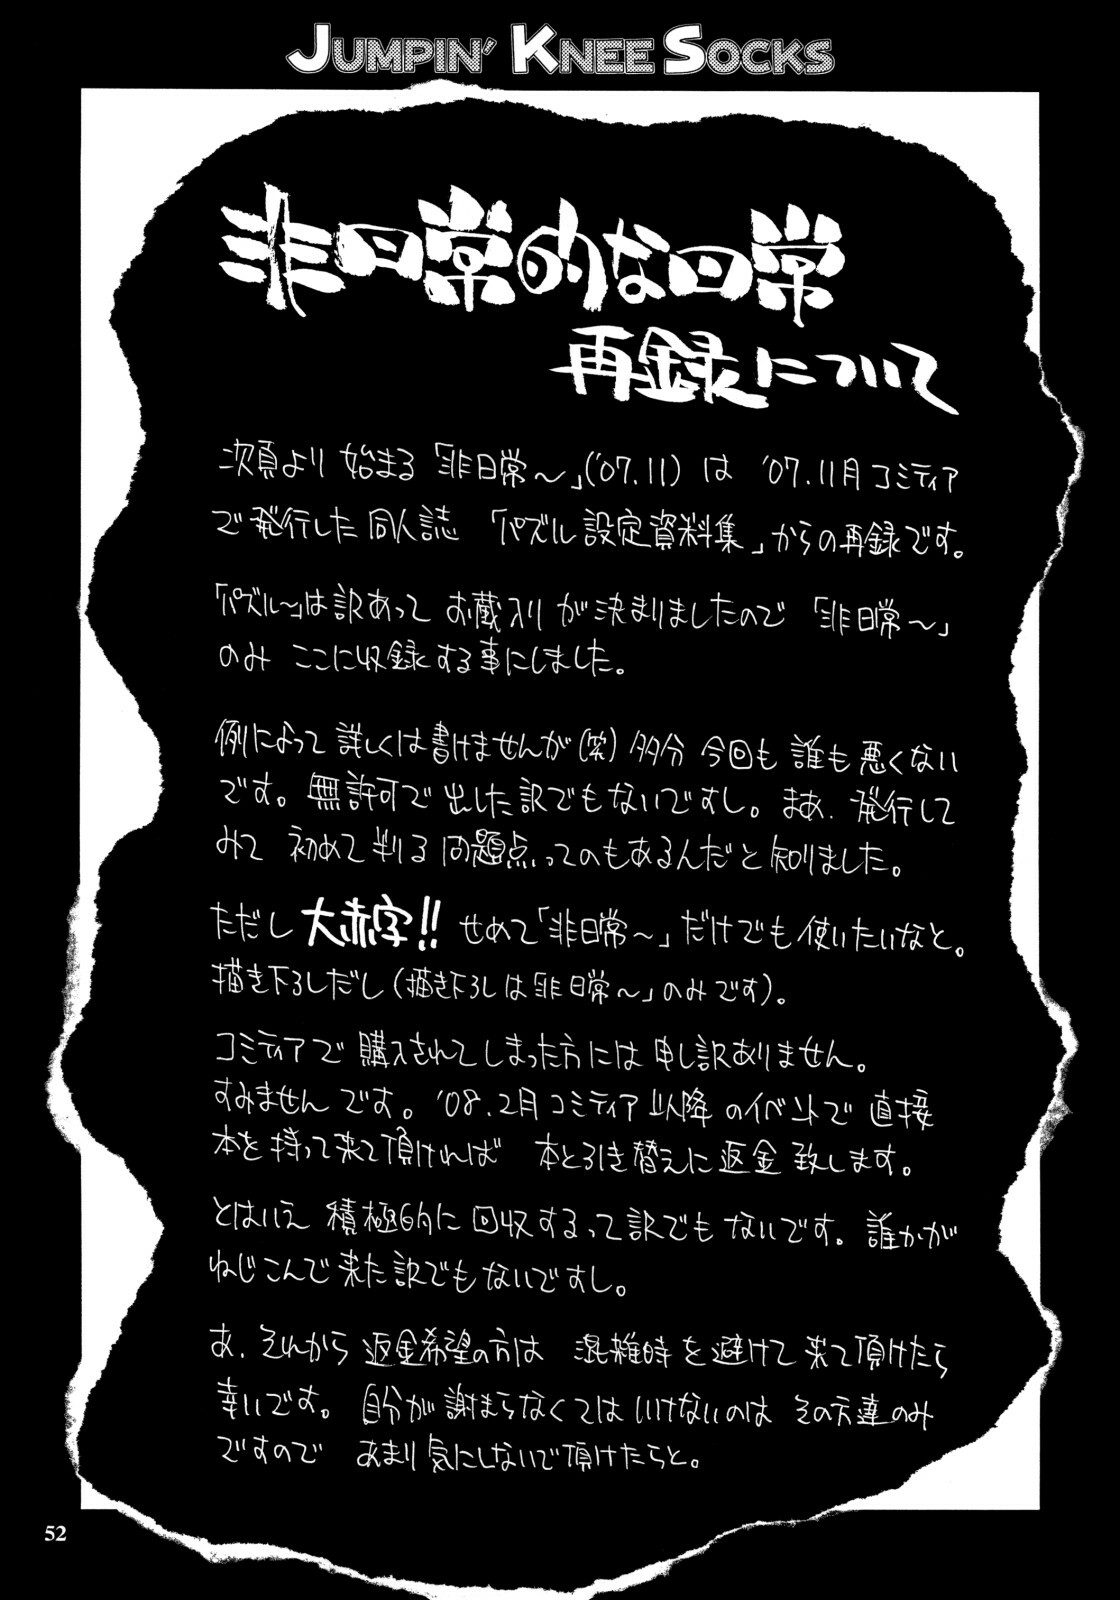 JUMPIN' KNEE SOCKS
非日常的な日常
再録について
次頁より 始まる「非日常～」('07.11) は '07.11月コミティア
で発行した同人誌 「パズル設定資料集」からの再録です。
「パズル～」は訳あって お蔵入りが決まりましたので 「非日常～」
のみ ここに収録する事にしました。
例によって詳しくは書けませんが(笑) 多分 今回も誰も悪くない
です。無許可で出した訳でもないですし。まあ、発行して
みて 初めて判る問題点ってのもあるんだと知りました。
ただし 大赤字!! せめて「非日常～」だけでも使いたいなと。
描き下ろしだし(描き下ろしは「非日常～」のみです)。
コミティアで購入されてしまった方には申し訳ありません。
すみませんです。'08.2月コミティア以降のイベントで直接
本を持って来て頂ければ 本と引き替えに返金致します。
とはいえ積極的に回収するって訳でもないです。誰かが
ねじこんで来た訳でもないですし。
あ、それから返金希望の方は 混雑時を避けて来て頂けたら
幸いです。自分が謝まらなくてはいけないのは その方達のみ
ですので あまり気にしないで頂けたらと。
52